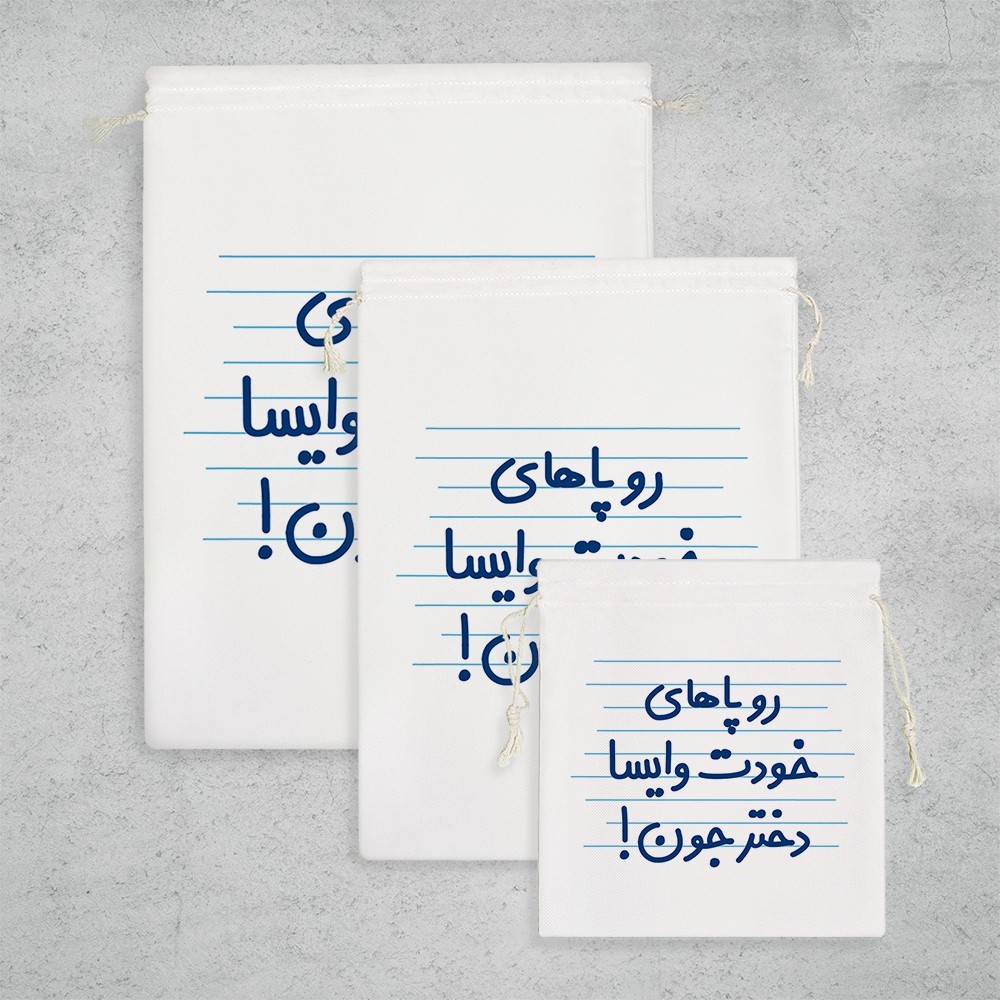 ی
وایسا
ن!
رو پاهای
وایسا
ن!
رو پاهای
خودت وایسا
دختر جون!